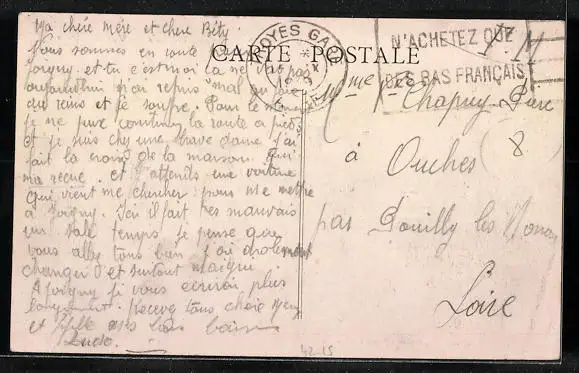 Ma chère Mère et chere Béty
Nous sommes en route pour
Joigny et tu c'est moi ca ne vat pas
aujourdhui j'ai repris mal au
du reins et je soufre. Pour le
je ne peux continuer la route a pied
et je suis chez une brave dame j'ai
fait la de la maison qui
ma recue et j'attends une voiture
qui vient me chercher pour me mettre
à Joigny. Ici il fait tres mauvais
un sale temps je pense que
vous allez tous bien j'ai drolement
changer et surtout maigri
A Joigny je vous ecrirai plus
longuement. Recevez tous
et mille bons baisers
CARTE POSTALE
TROYES GARE
N'ACHETEZ QUE
DES BAS FRANÇAIS
Mme Chapuy Père
à Ouches (8)
par Pouilly les Nonains
Loire
42-15